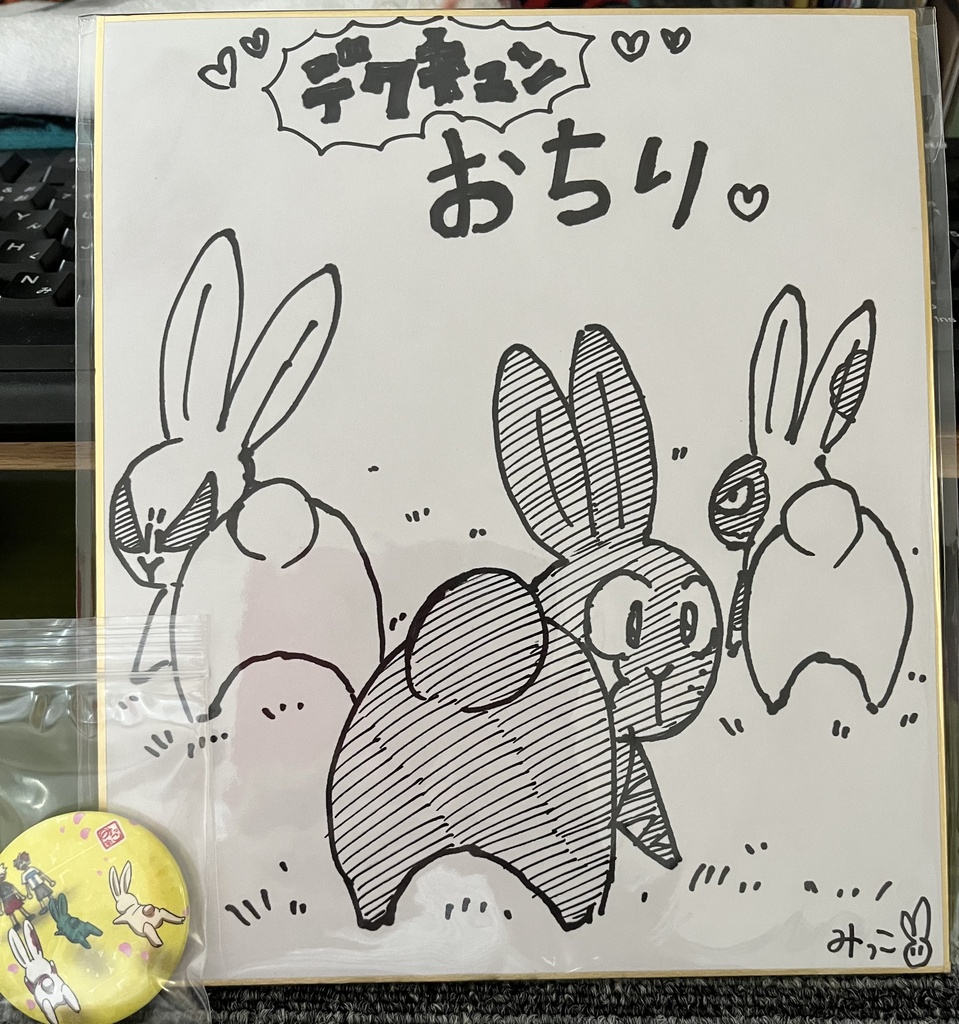 デクキュン
おちり
H
く
N
み
みっこ